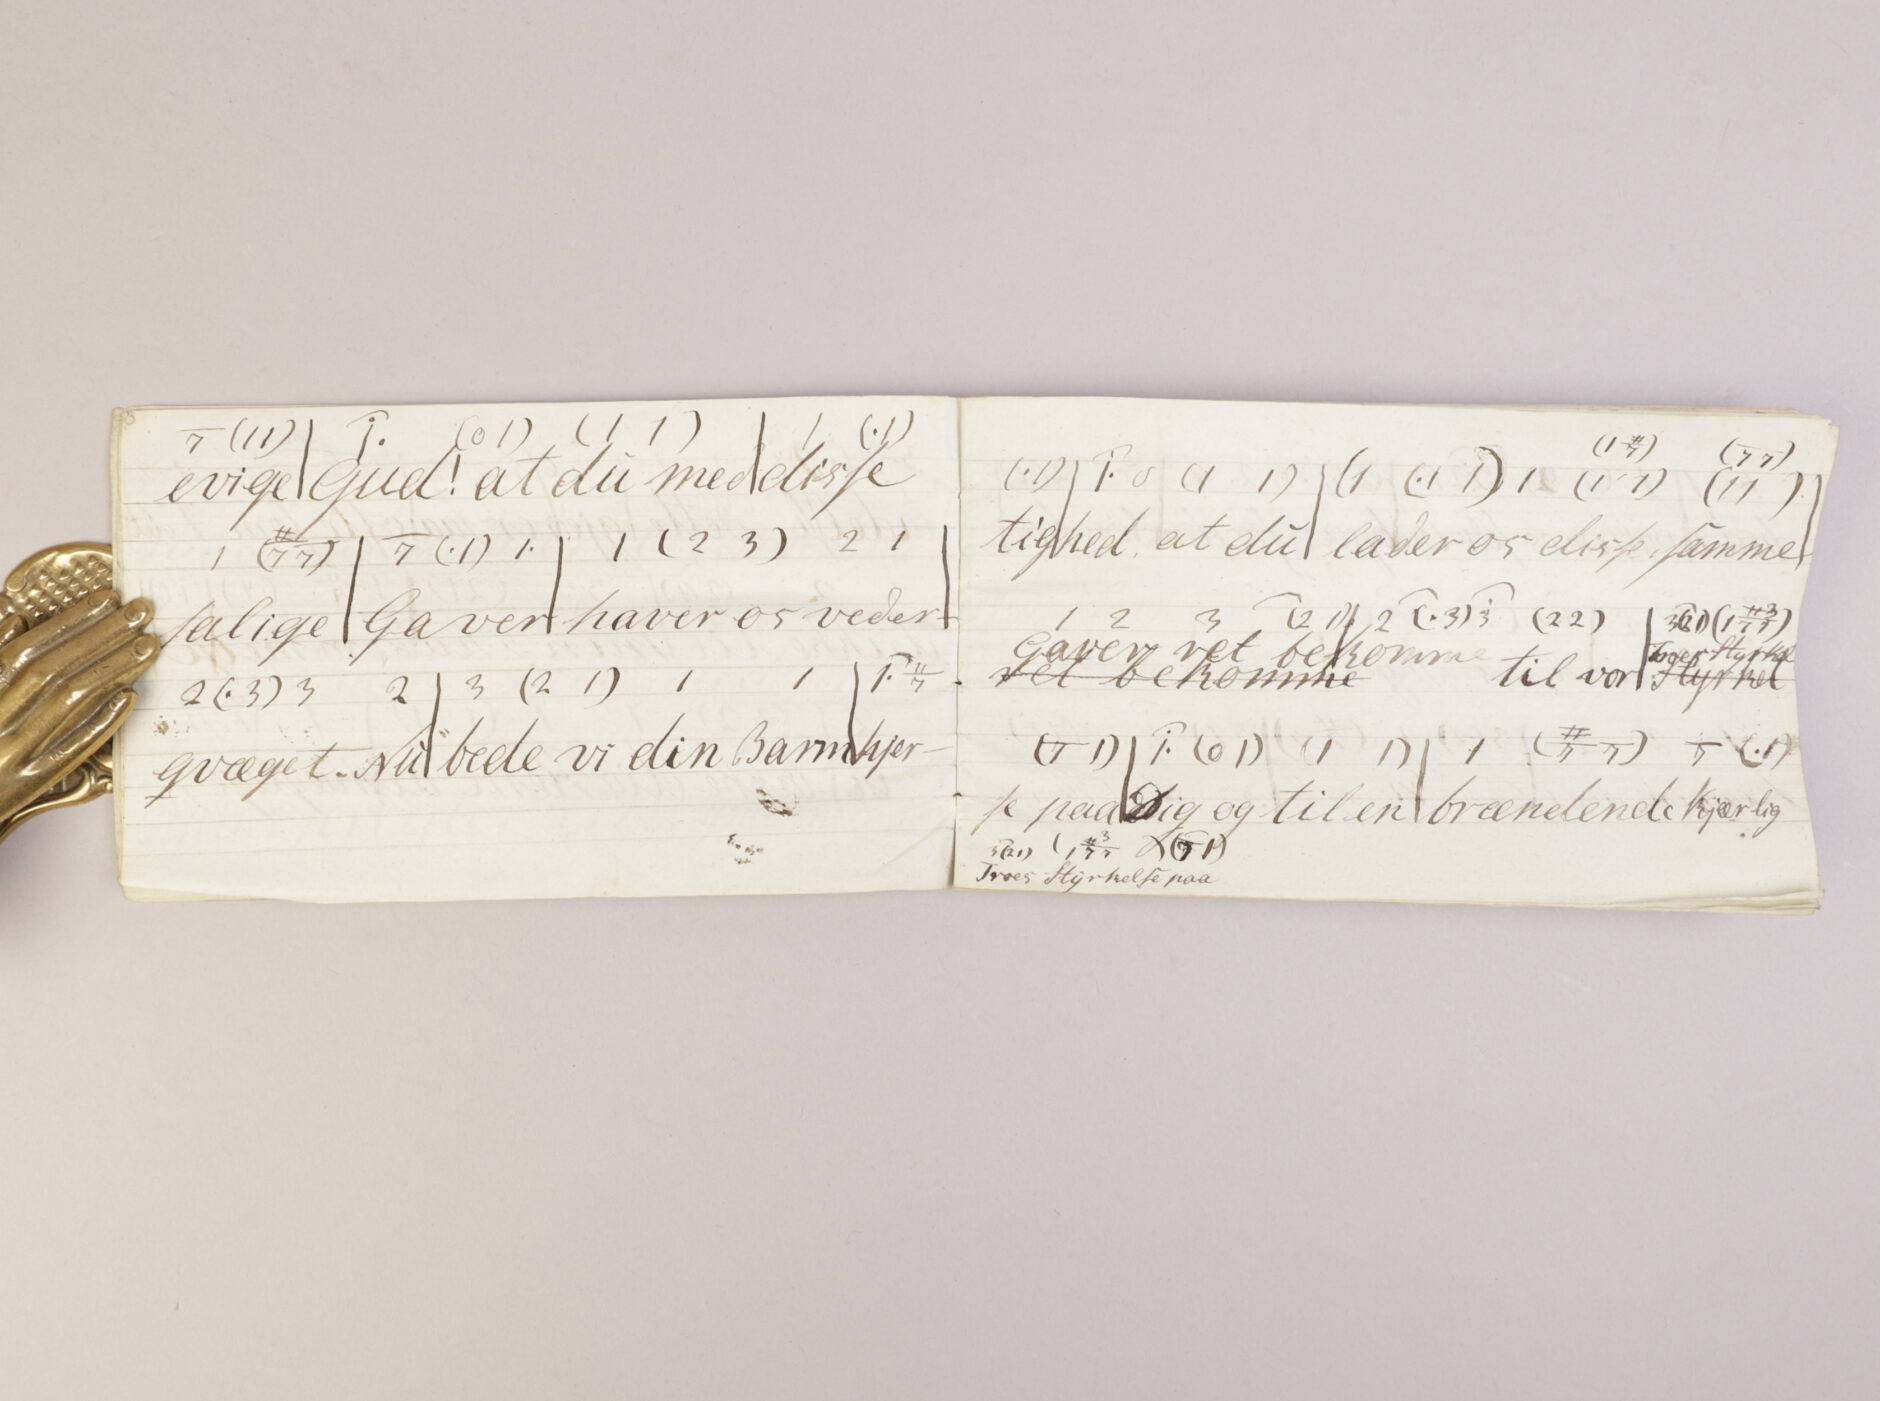 7 (11) | 1. (01) (1 1) | 1 (.1)
evige | Gud! at du med | disse
1 (#7 7) | 7 (.1) 1. | 1 (2 3) 2 1 |
salige | Gaver | haver os veder- |
2 (.3) 3 2 | 3 (2 1) 1 1 | 1. #7
qvæget. Nu | bede vi din Barm | hjer-
(1 #7) (7 7)
(.1) | 1. 0 (1 1) | (1 (.1 1)) 1 (1 1) (11) |
tighed. at du | lader os disse samme |
1 2 3 (2 1) | 2 (.3) 3 (22) |
Gaver ret be | komme Troes Styrkel
ret bekomme til vor | Styrkel
(7 1) | 1. (0 1) (1 1) | 1 (#7 7) 7 (.1)
se paa | Dig og til en | brændende Kjærlig
Troes Styrkelse paa